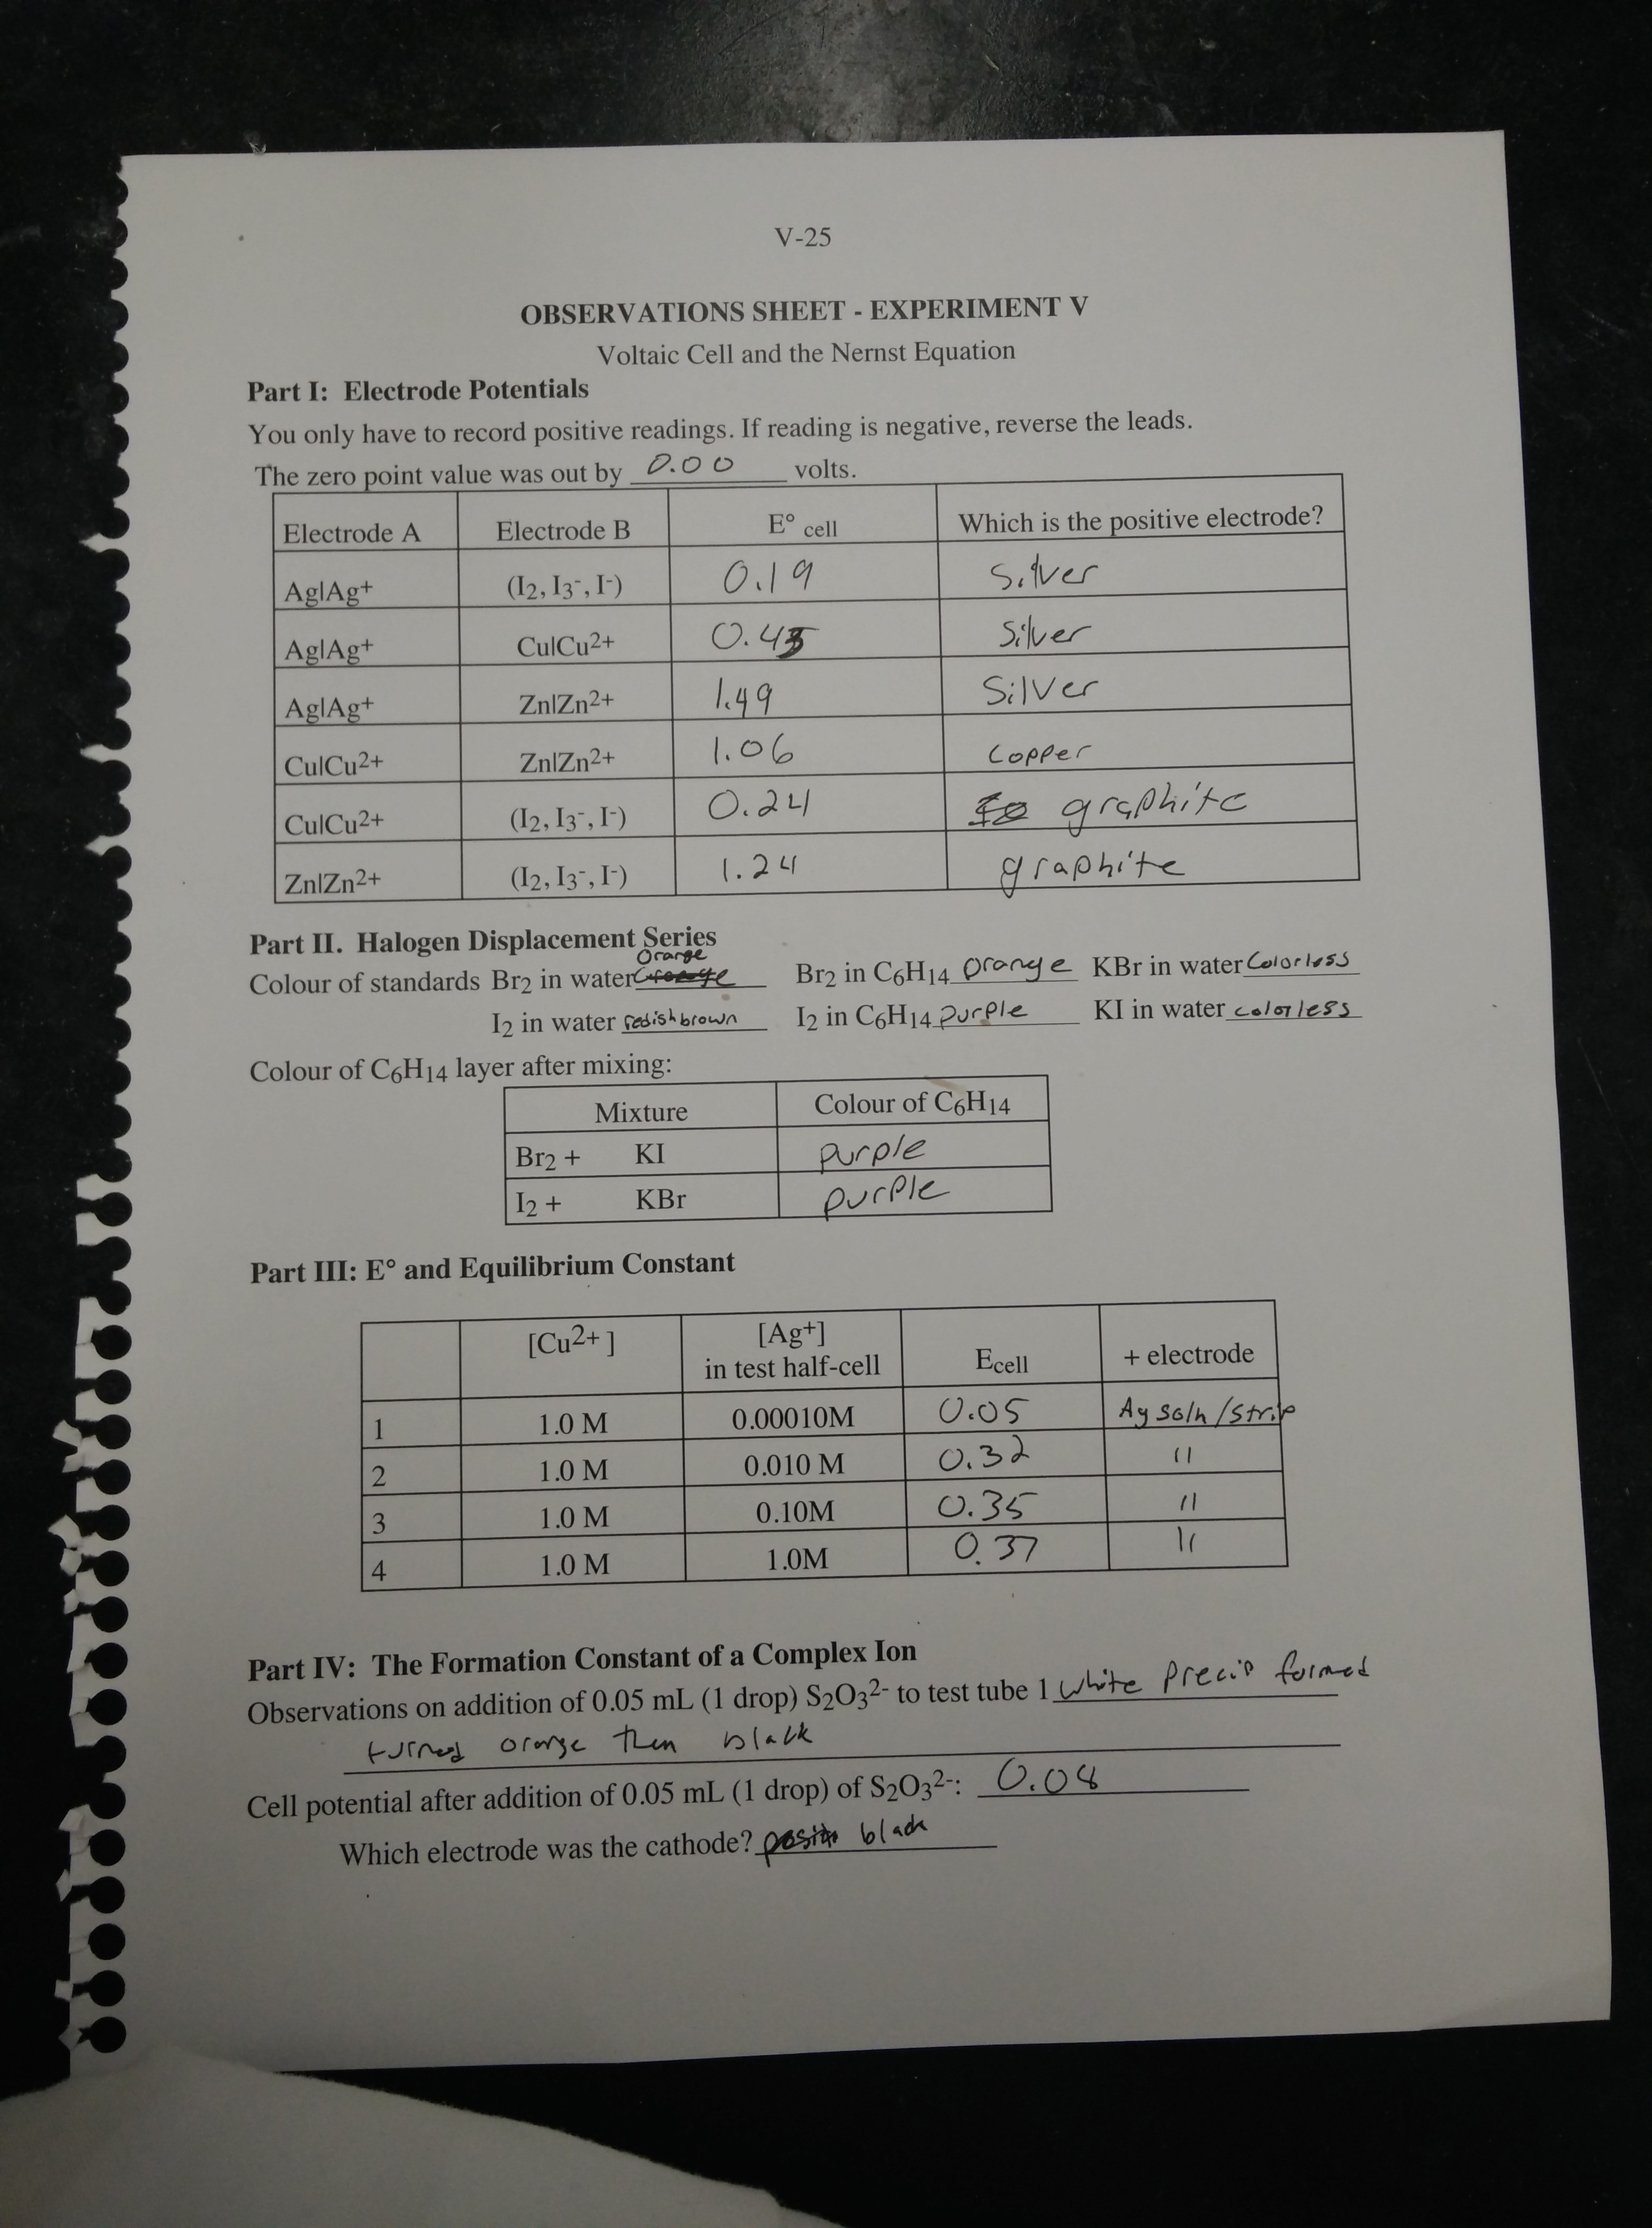 V-25
OBSERVATIONS SHEET - EXPERIMENT V
Voltaic Cell and the Nernst Equation
Part I: Electrode Potentials
You only have to record positive readings. If reading is negative, reverse the leads.
The zero point value was out by 0.00 volts.
Electrode A Electrode B E° cell Which is the positive electrode?
Ag|Ag+ (I2, I3-, I-) 0.19 Silver
Ag|Ag+ Cu|Cu2+ 0.43 Silver
Ag|Ag+ Zn|Zn2+ 1.49 Silver
Cu|Cu2+ Zn|Zn2+ 1.06 Copper
Cu|Cu2+ (I2, I3-, I-) 0.24 graphite
Zn|Zn2+ (I2, I3-, I-) 1.24 graphite
Part II. Halogen Displacement Series
Colour of standards Br2 in water Orange Br2 in C6H14 orange KBr in water Colorless
I2 in water redishbrown I2 in C6H14 purple KI in water colorless
Colour of C6H14 layer after mixing:
Mixture Colour of C6H14
Br2 + KI purple
I2 + KBr purple
Part III: E° and Equilibrium Constant
[Cu2+] [Ag+] in test half-cell Ecell + electrode
1 1.0 M 0.00010M 0.05 Ag soln/strip
2 1.0 M 0.010 M 0.32 "
3 1.0 M 0.10M 0.35 "
4 1.0 M 1.0M 0.37 "
Part IV: The Formation Constant of a Complex Ion
Observations on addition of 0.05 mL (1 drop) S2O32- to test tube 1 white Precip formed
turned orange then black
Cell potential after addition of 0.05 mL (1 drop) of S2O32-: 0.08
Which electrode was the cathode? black